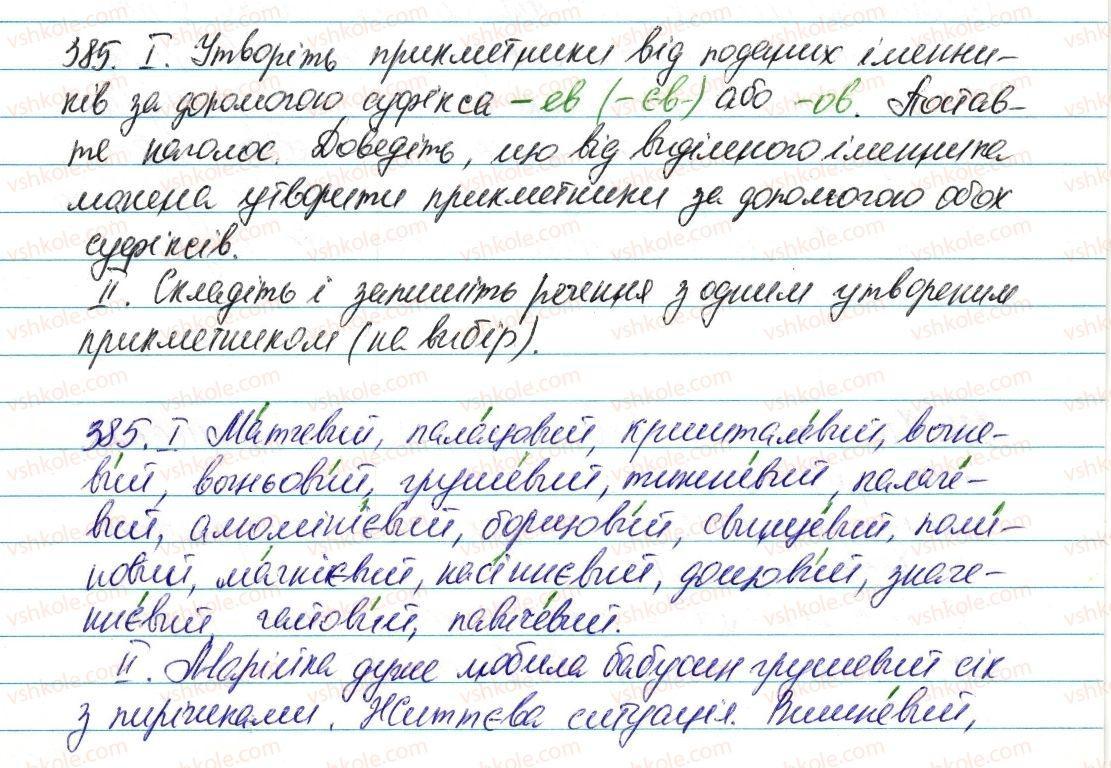 385. I. Утворіть прикметники від поданих іменни-
ків за допомогою суфікса -ев (-єв-) або -ов. Постав-
те наголос. Доведіть, що від виділеного іменника
можна утворити прикметники за допомогою обох
суфіксів.
II. Складіть і запишіть речення з одним утвореним
прикметником (на вибір).
385. I Ма́тчевий, пала́цовий, кришталéвий, вогне-
ви́й, вогньови́й, груше́вий, тижне́вий, палаче́-
вий, алюмі́нієвий, борщови́й, свинце́вий, полі-
новий, ма́гнієвий, насі́ннєвий, дощови́й, значе-
ннє́вий, гайови́й, павиче́вий.
II. Марійка дуже любила бабусин грушевий сік
з пиріжками. Життєва ситуація. Вишне́вий,